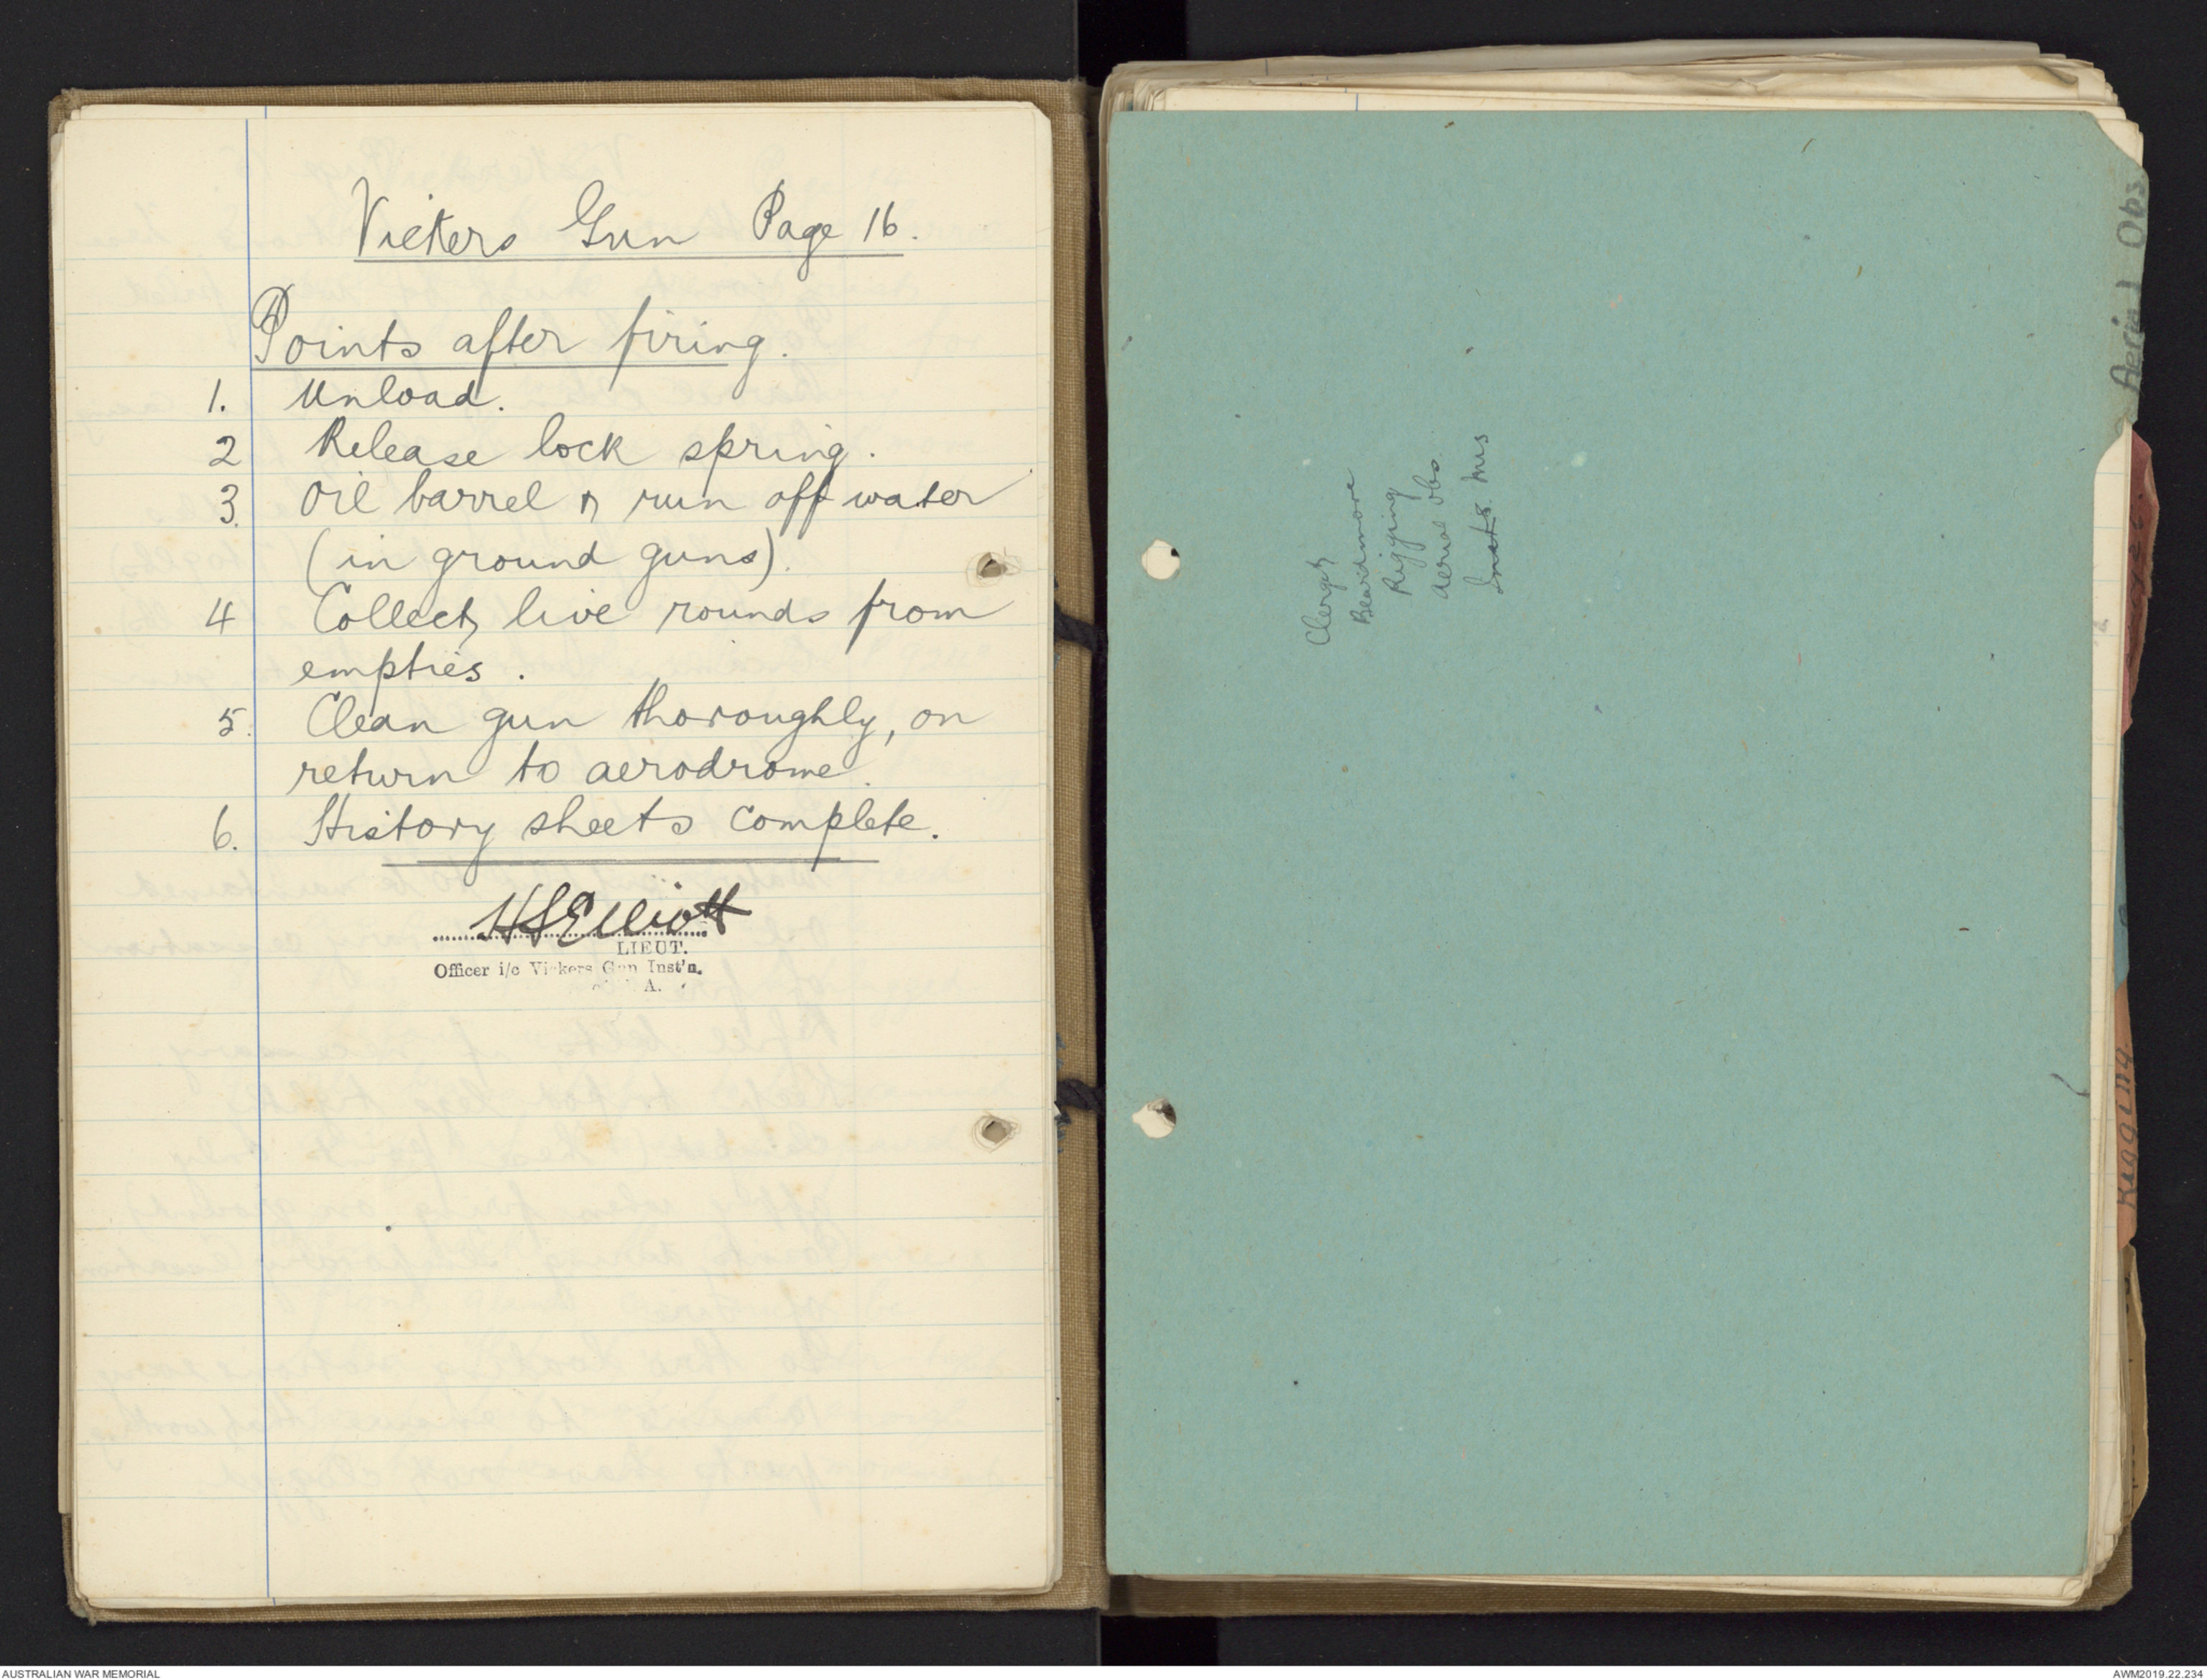 Vickers Gun Page 16.
Points after firing.
1. Unload.
2 Release lock spring.
3. Oil barrel & run off water
(in ground guns).
4 Collect, live rounds from
empties.
5. Clean gun thoroughly, on
return to aerodrome.
6. History sheets complete.
HSElliott
LIEUT.
Officer i/c Vickers Gun Inst'n.
A.
Clerget
Beardmore
Rigging
Aerial Obs.
Insts.
Aerial Obs.
Rigging.
AUSTRALIAN WAR MEMORIAL
AWM2019.22.234